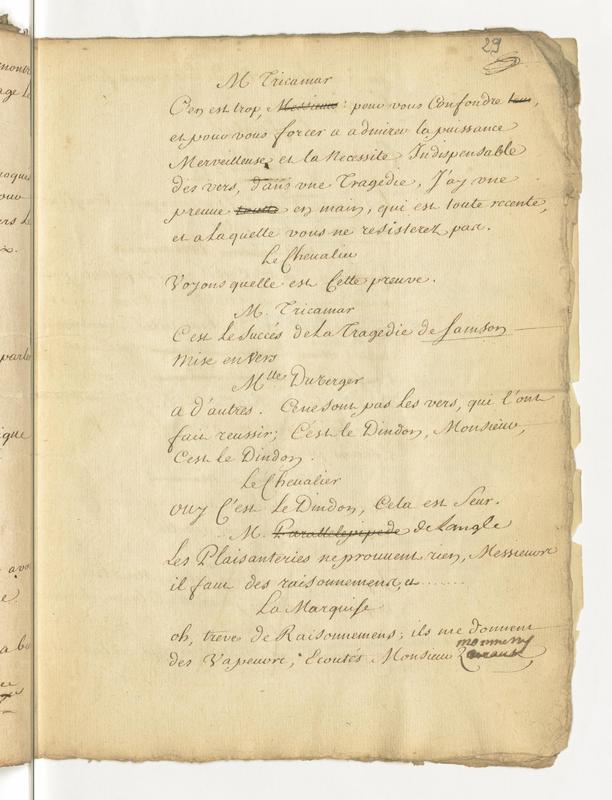 29
M. Tricamar
C'en est trop, Messieurs : pour vous Confondre tous,
et pour vous forcer a admirer la puissance
Merveilleuse et la Necessité Indispensable
des vers, dans une Tragedie, J'ay une
preuve en main, qui est toute recente,
et a laquelle vous ne resisterez pas.
Le Chevalier
Voyons quelle est Cette preuve.
M. Tricamar
C'est le succés de la Tragedie de Samson
mise en vers
Mlle Duverger
a d'autres. Ce ne sont pas les vers, qui l'ont
fait reussir; C'est le Dindon, Monsieur,
C'est le Dindon.
Le Chevalier
ouy C'est le Dindon, Cela est seur.
M. Parallelepipede de Langle
Les Plaisanteries ne prouvent rien, Messieurs
il faut des raisonnemens, .......
La Marquise
oh, treve de Raisonnemens; ils me donnent
des Vapeurs; Ecoutés Monsieur